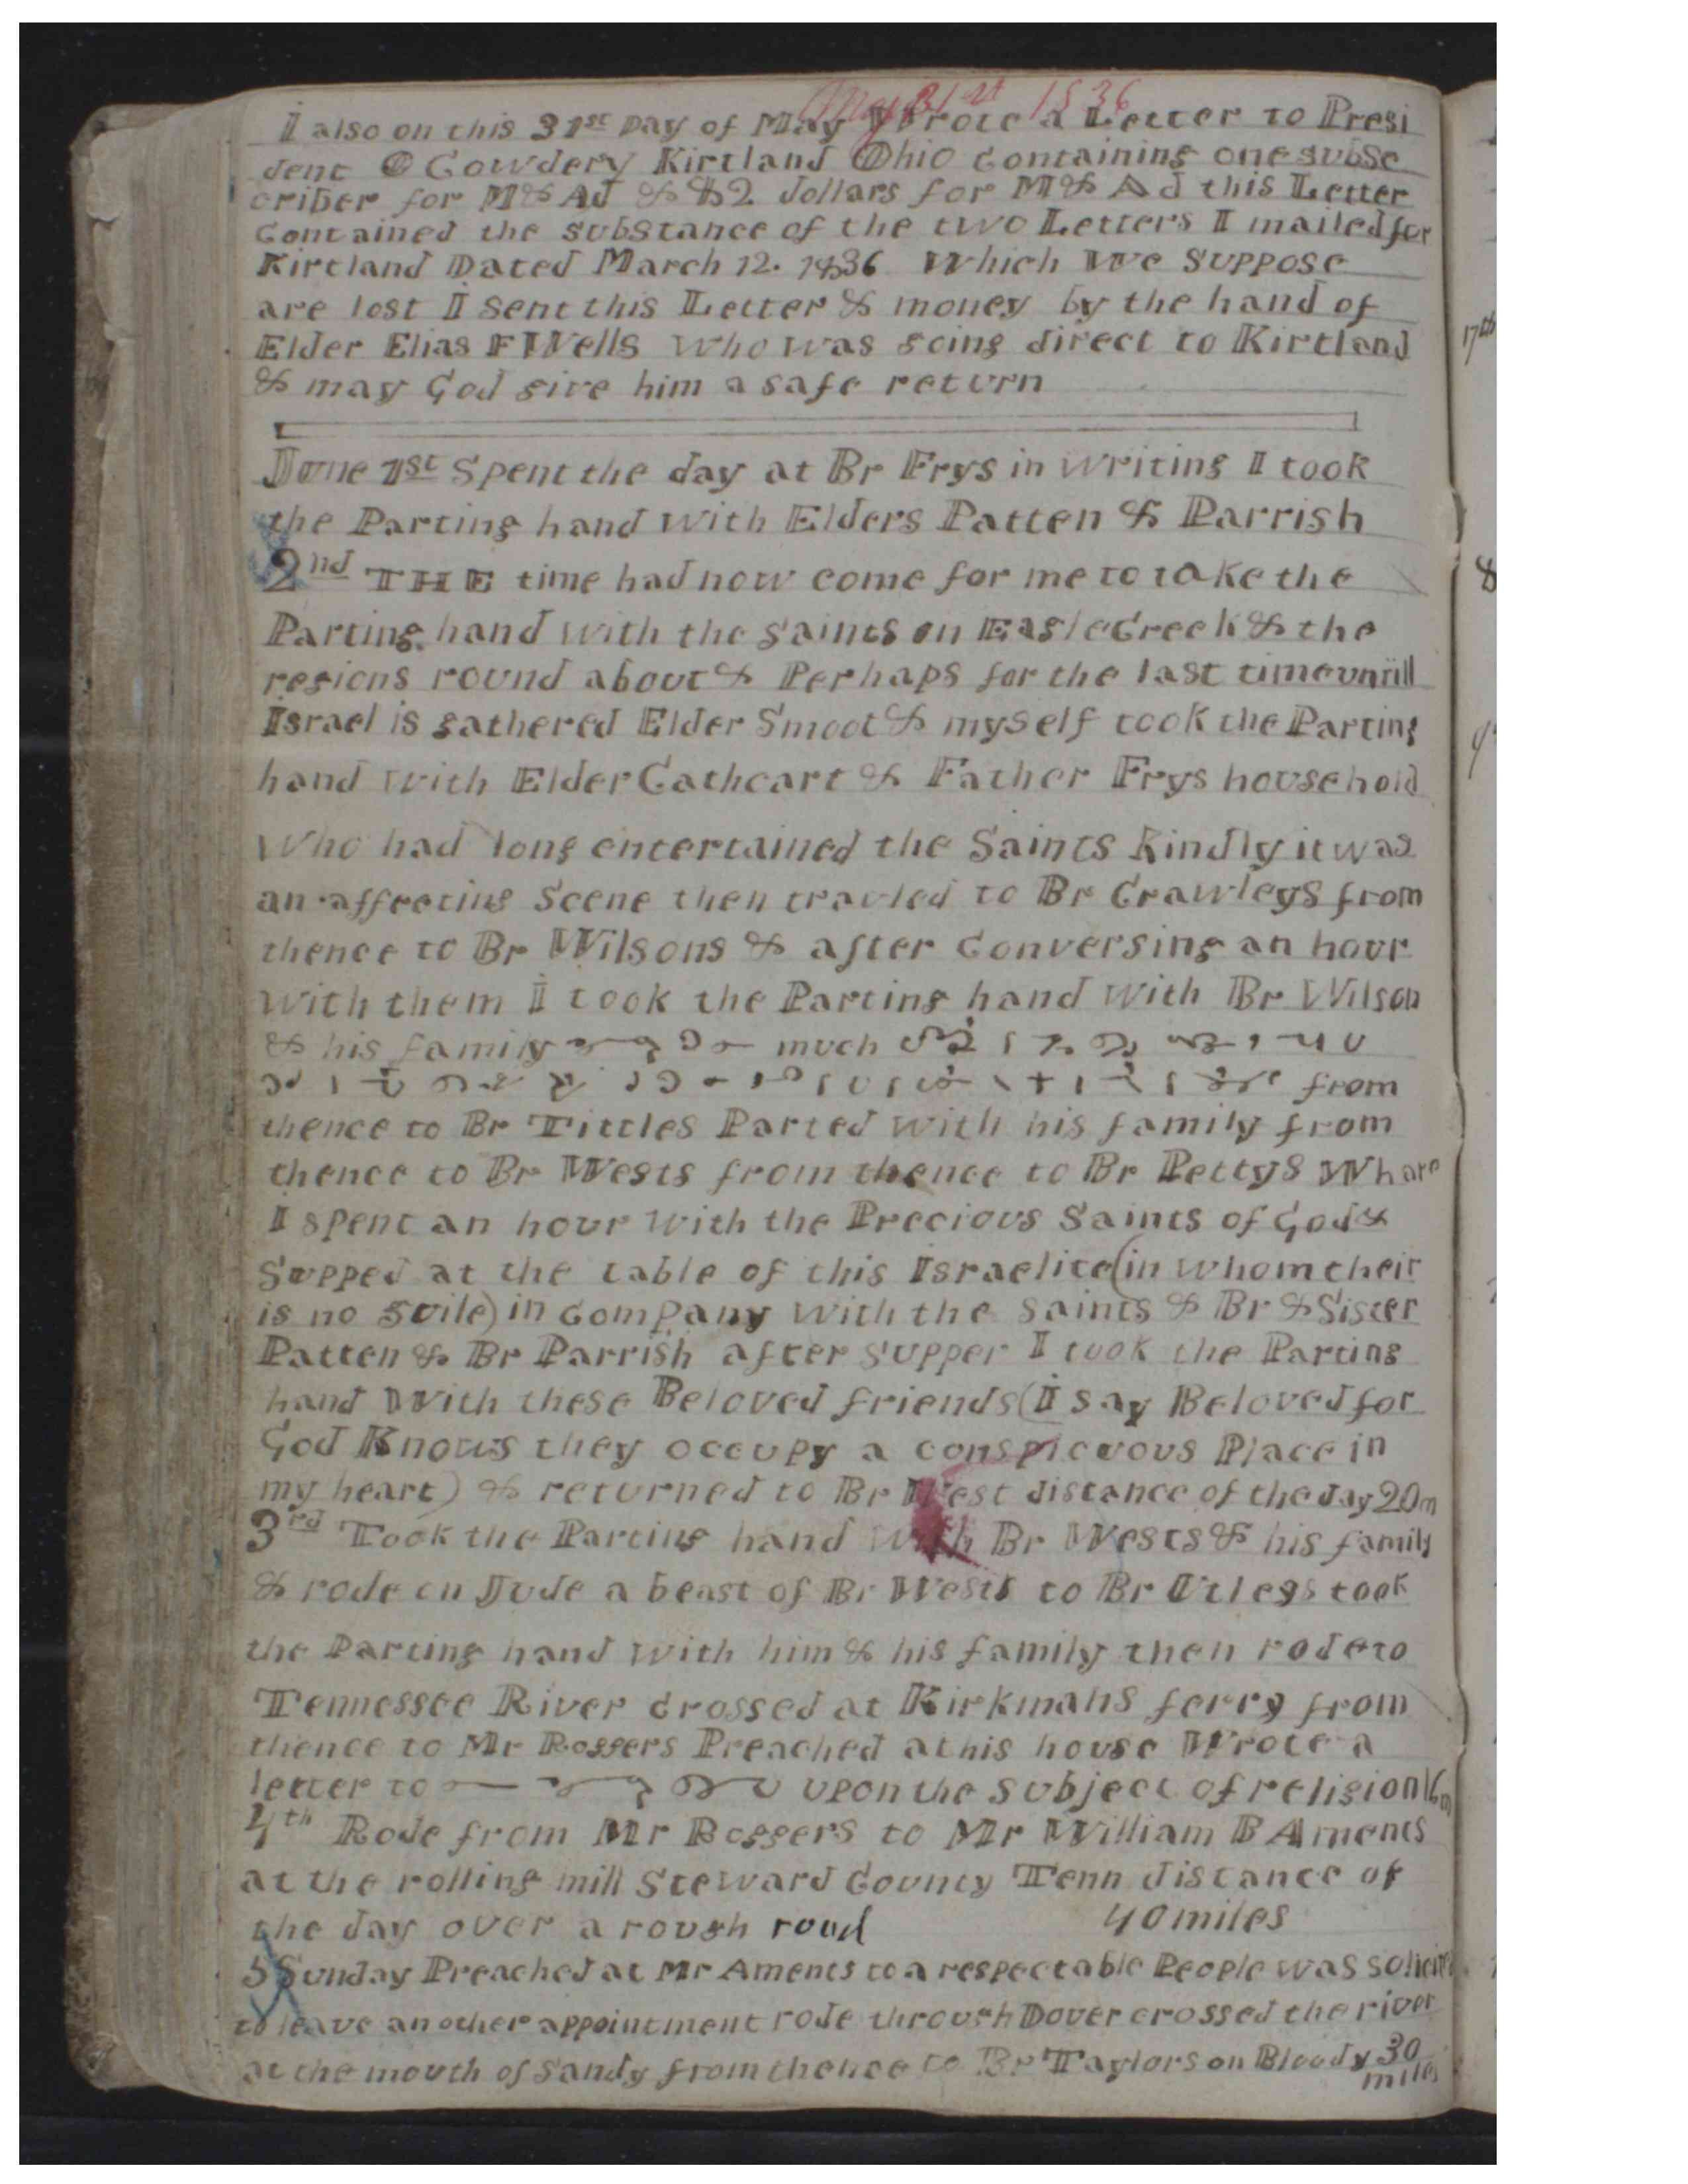 May 31st 1836
I also on this 31st Day of May Wrote a Letter to Presi
dent O Cowdery Kirtland Ohio Containing one subsc
criber for M & Ad & $2. dollars for M & Ad this Letter
Contained the substance of the two Letters I mailed for
Kirtland Dated March 12. 1836 Which We Suppose
are lost I sent this Letter & money by the hand of
Elder Elias F Wells Who was going direct to Kirtland
& may God give him a safe return
June 1st Spent the day at Br Frys in writing I took
the Parting hand with Elders Patten & Parrish
2nd THE time had now come for me to take the
Parting hand with the Saints on Eagle Creek & the
regions round about & Perhaps for the last time untill
Israel is gathered Elder Smoot & myself took the Parting
hand with Elder Cathcart & Father Frys household
Who had long entertained the Saints Kindly it was
an affecting Scene then travled to Br Crawleys from
thence to Br Wilsons & after Conversing an hour
with them I took the Parting hand with Br Wilson
& his family much
from
thence to Br Tittles Parted with his family from
thence to Br Wests from thence to Br Pettys Whare
I spent an hour with the Precious Saints of God &
Supped at the table of this Israelite (in whom their
is no guile) in Company with the Saints & Br & Sister
Patten & Br Parrish after supper I took the Parting
hand With these Beloved friends (I say Beloved for
God Knows they occupy a conspicuous Place in
my heart) & returned to Br West distance of the day 20m
3rd Took the Parting hand with Br Wests & his family
& rode on Jude a beast of Br Wests to Br Utleys took
the Parting hand with him & his family then rode to
Tennessee River Crossed at Kirkmans ferry from
thence to Mr Roggers Preached at his house Wrote a
letter to upon the subject of religion 16m
4th Rode from Mr Roggers to Mr William B Aments
at the rolling mill Steward County Tenn distance of
the day over a rough road 40 miles
5 Sunday Preached at Mr Aments to a respectable People was
to leave another appointment rode through Dover crossed the river
at the mouth of Sandy from thence to Br Taylors on Bloody 30
miles
17th